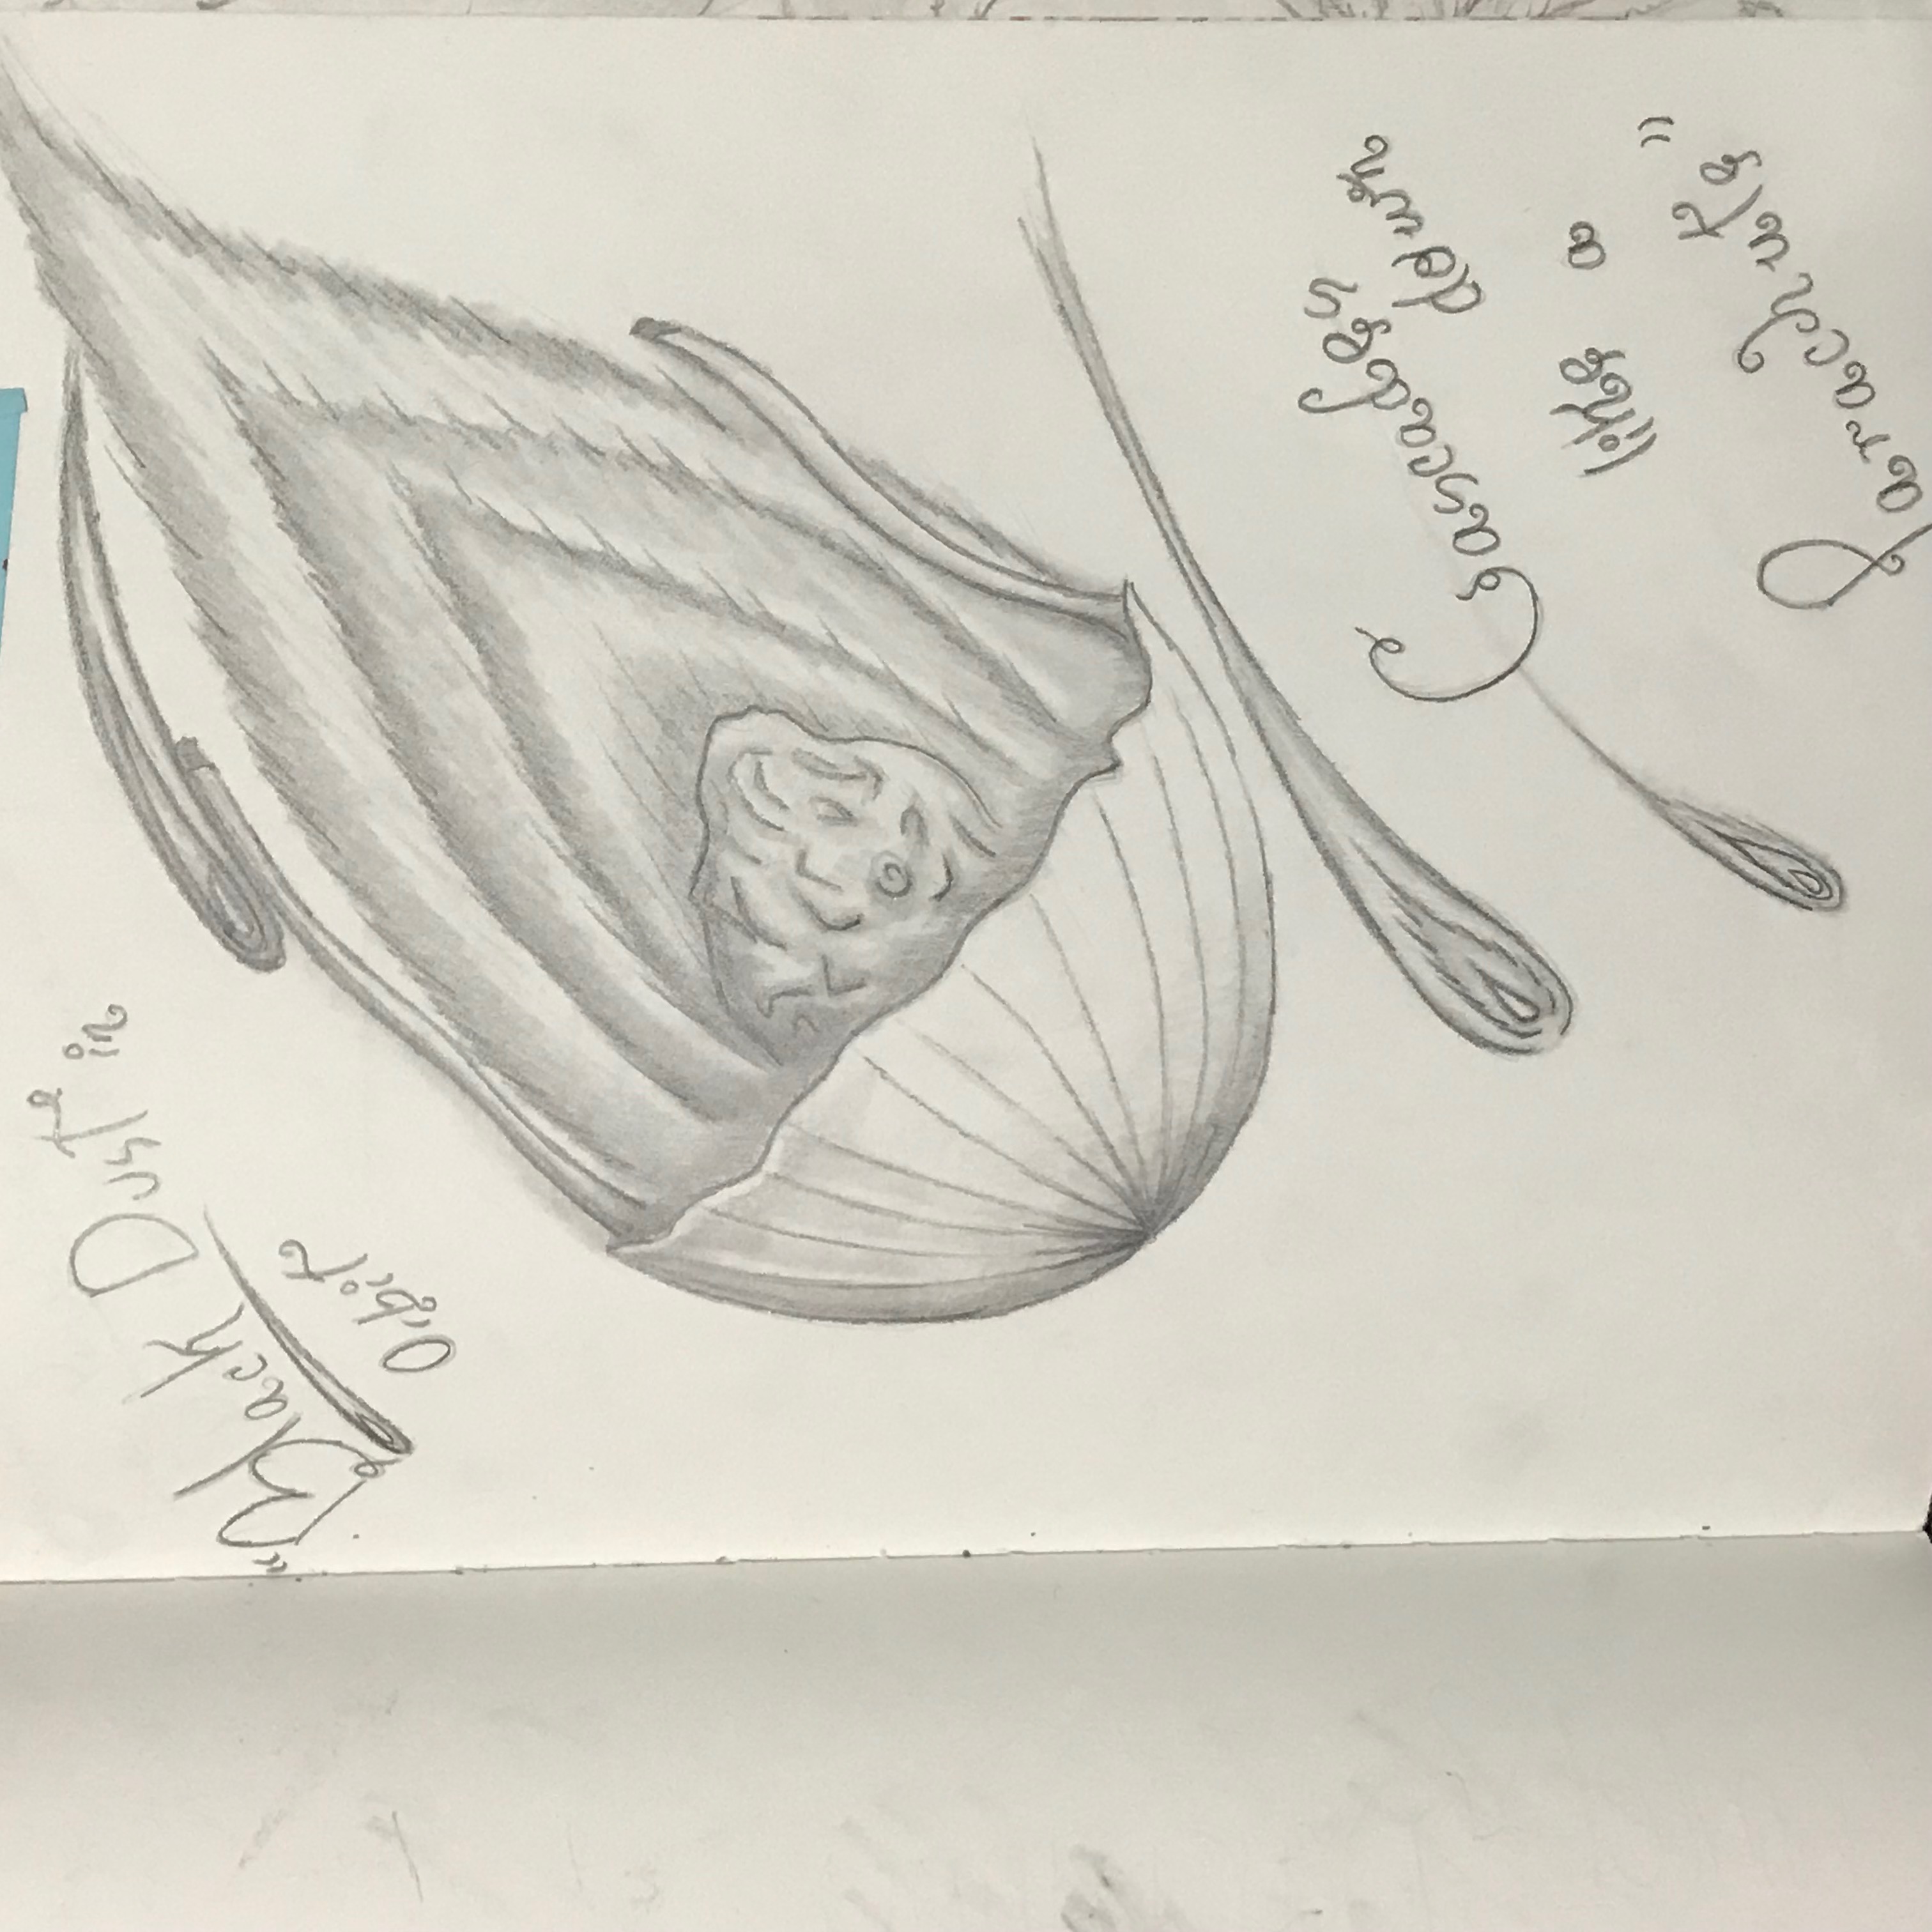 "Black Dust in
Orbit
Cascades
down
like a
Parachute"